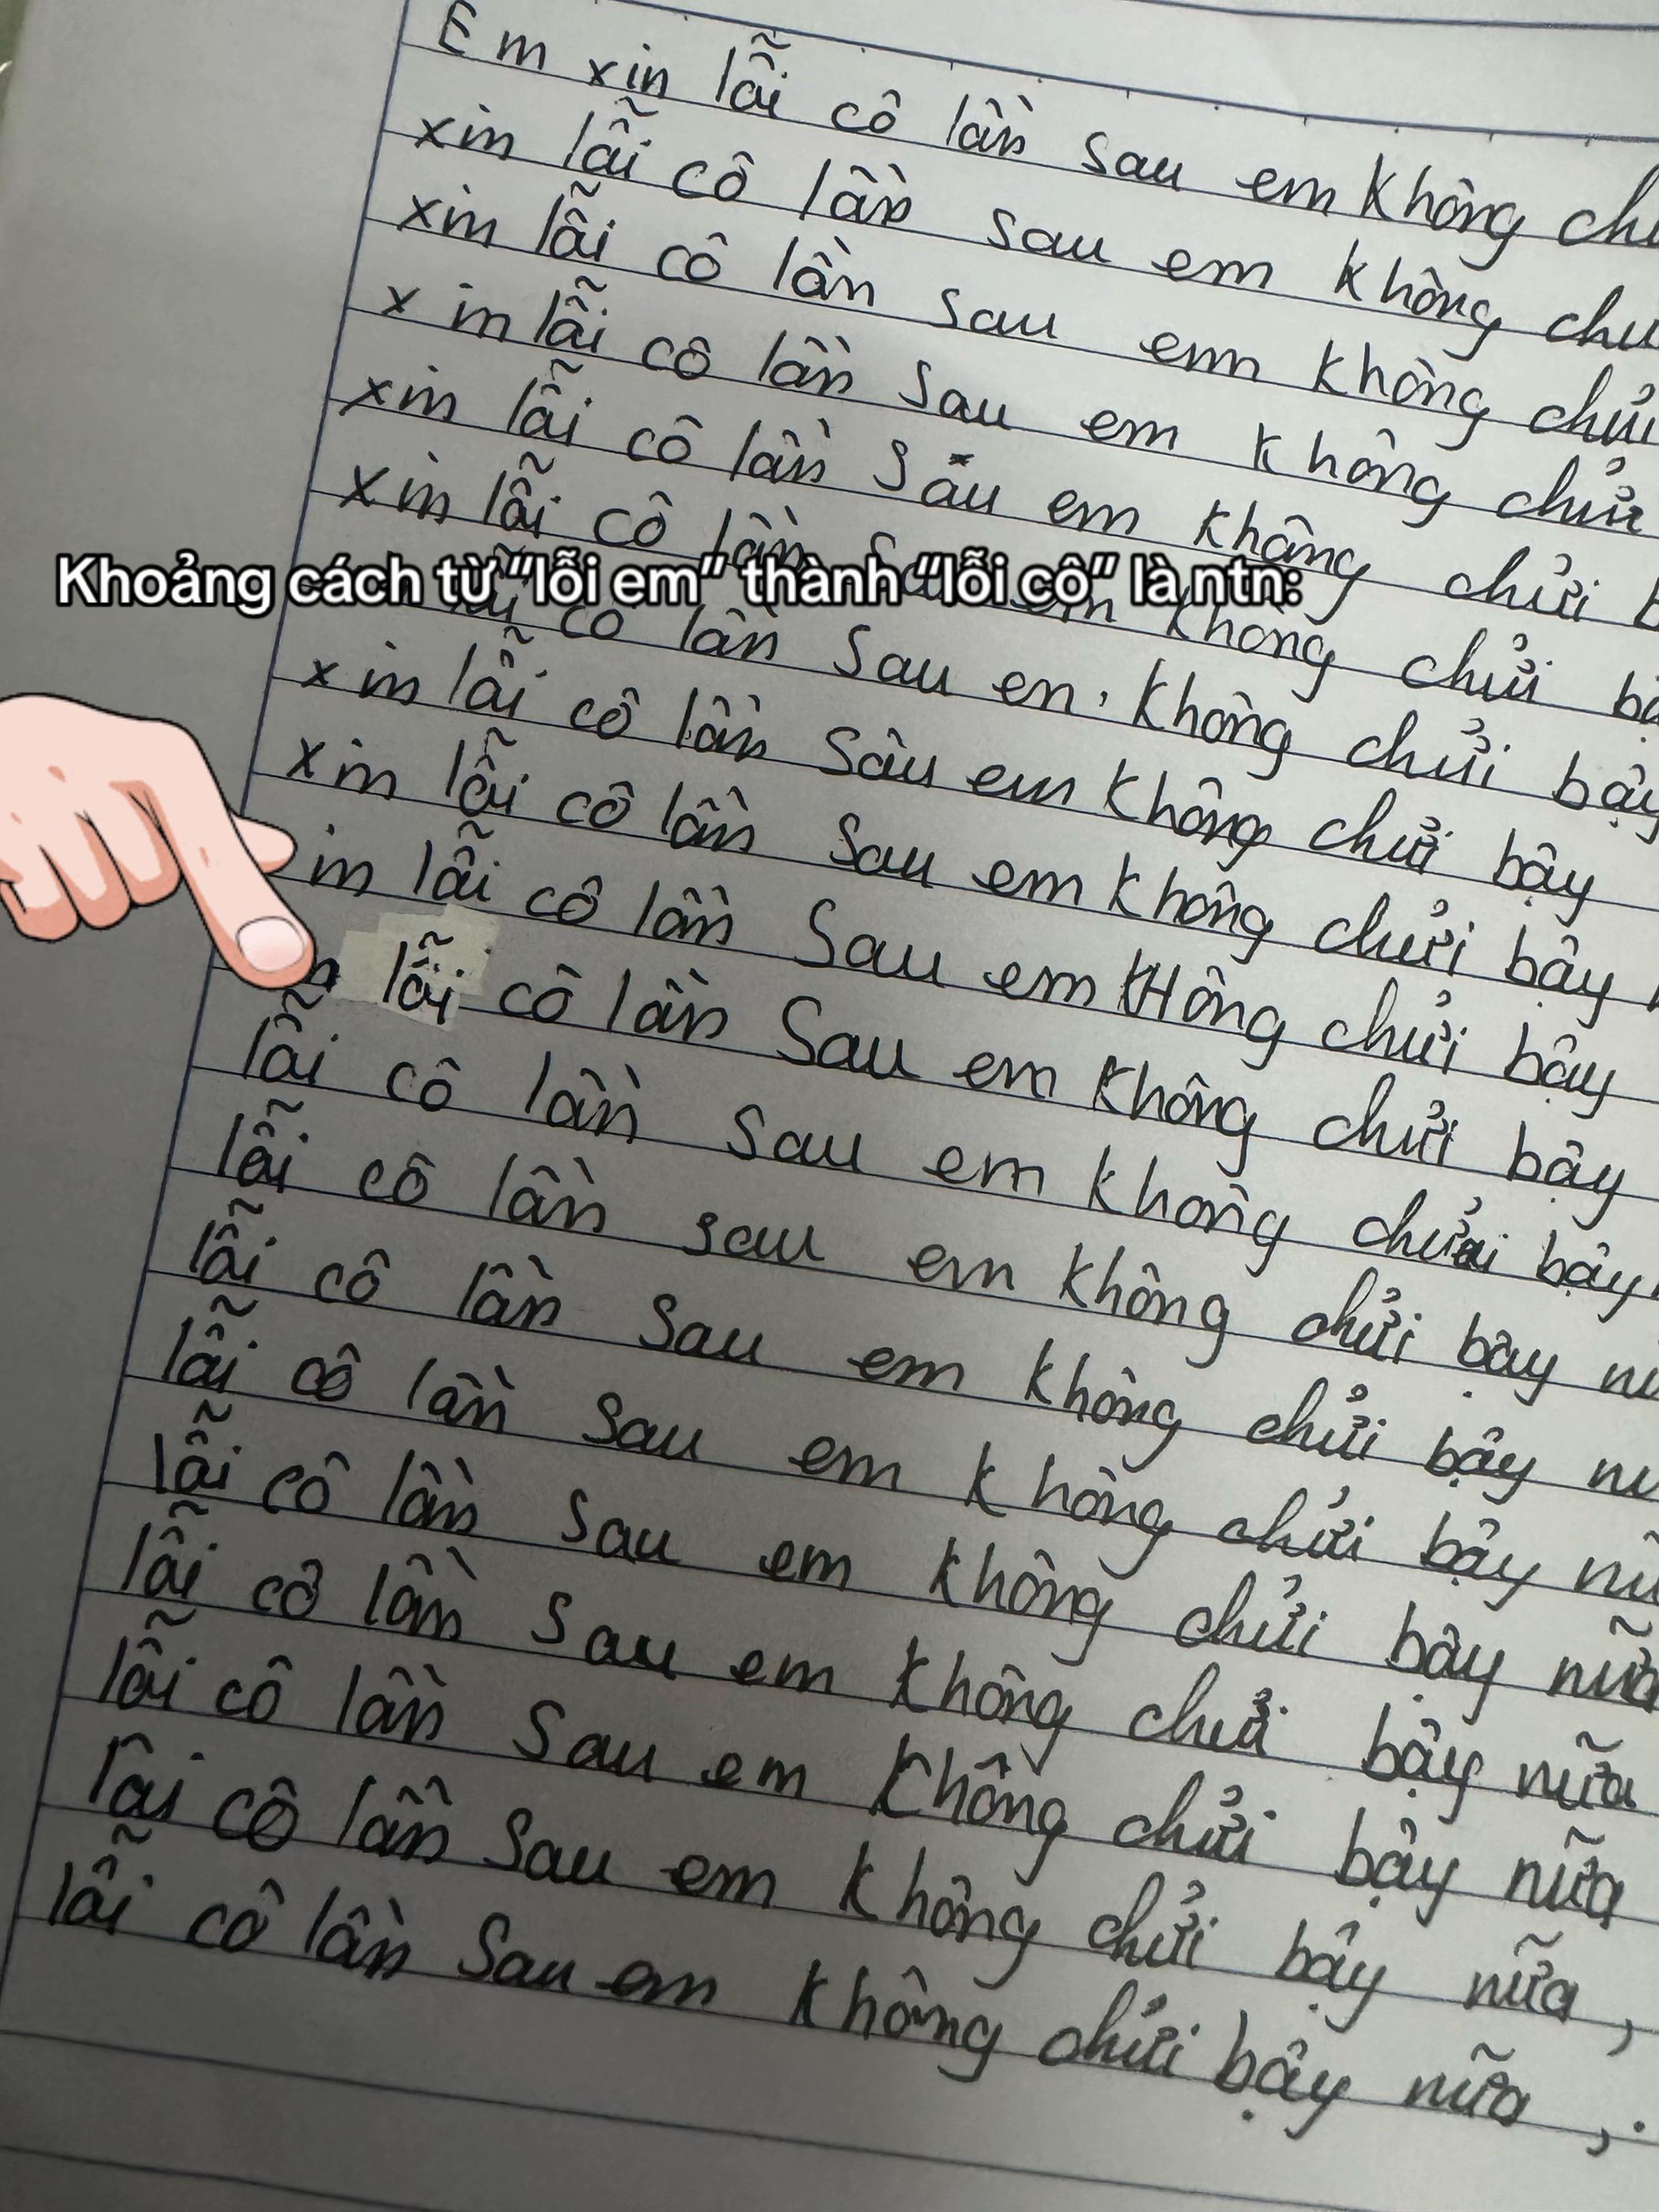 Em xin lỗi cô lần sau em không
xin lỗi cô lần sau em không
xin lỗi cô lần sau em không chửi
xin lỗi cô lần sau em không chửi
xin lỗi cô lần sau em không chửi
xin lỗi cô lần em không chửi
Khoảng cách từ "lỗi em" thành "lỗi cô" là ntn:
cô lần sau em không chửi bậy
xin lỗi cô lần sau em không chửi bậy
xin lỗi cô lần sau em không chửi bậy
lỗi cô lần sau em không chửi bậy
lỗi cô lần sau em không chửi bậy
lỗi cô lần sau em không chửi bậy
lỗi cô lần sau em không chửi bậy
lỗi cô lần sau em không chửi bậy
lỗi cô lần sau em không chửi bậy
lỗi cô lần sau em không chửi bậy nữa
lỗi cô lần sau em không chửi bậy nữa
lỗi cô lần sau em không chửi bậy nữa
lôi cô lần sau em không chửi bậy nữa,
lỗi cô lần sau em không chửi bậy nữa,.